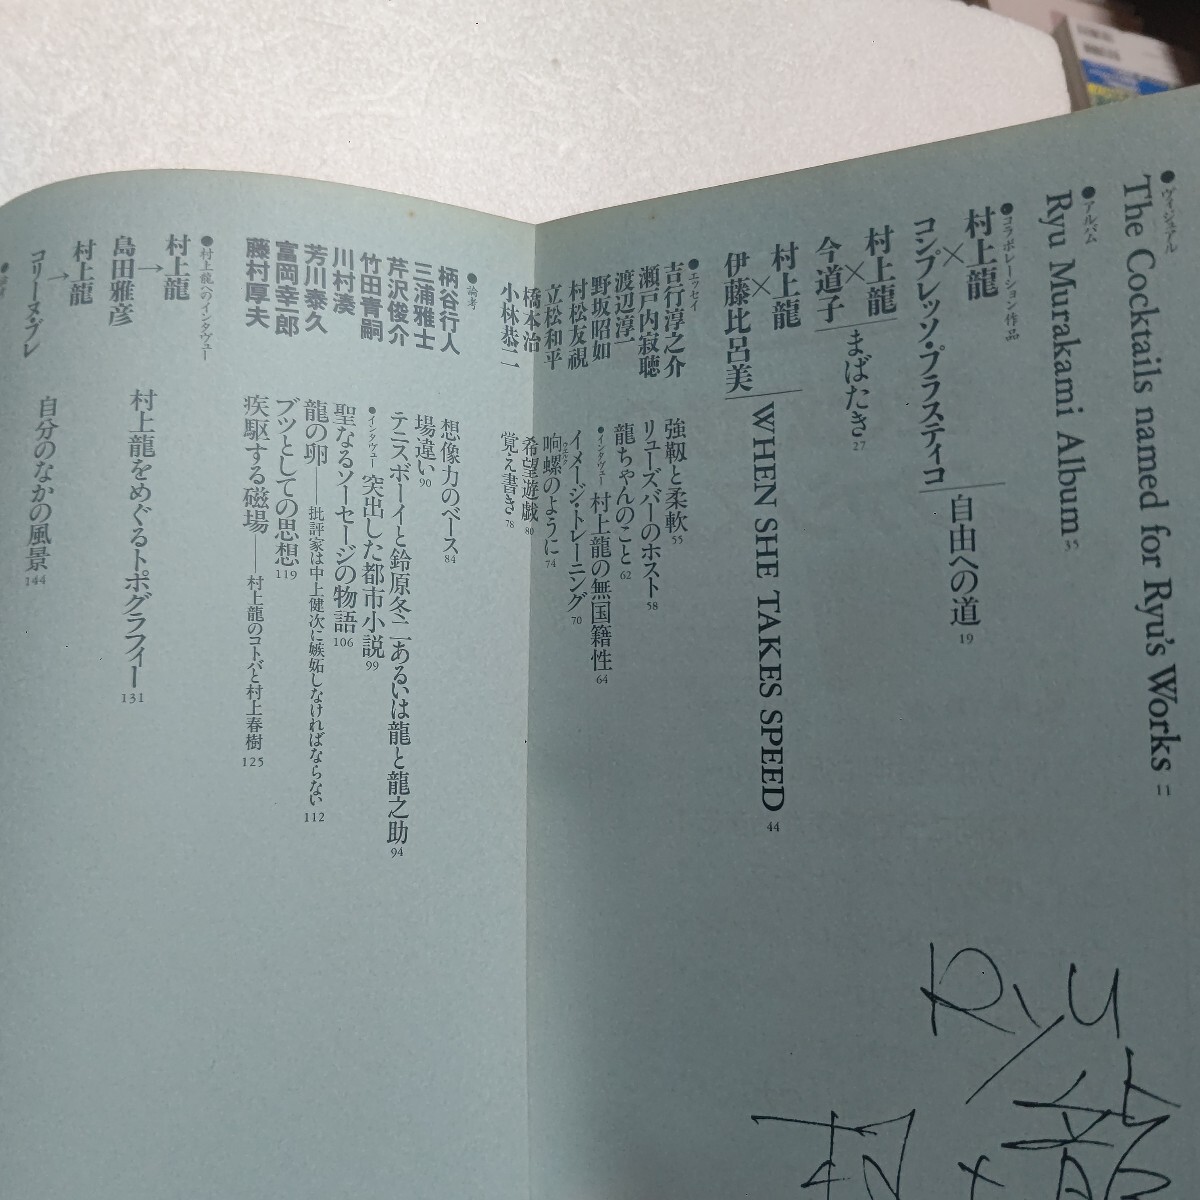 ●ヴィジュアル
The Cocktails named for Ryu's Works 11
●アルバム
Ryu Murakami Album 35
●コラボレーション作品
村上龍
×
コンプレッソ・プラスティコ
自由への道 19
村上龍
×
今道子
まばたき 27
村上龍
×
伊藤比呂美
WHEN SHE TAKES SPEED 44
●エッセイ
吉行淳之介 強靱と柔軟 55
瀬戸内寂聴 リューズバーのホスト 58
渡辺淳一 龍ちゃんのこと 62
野坂昭如 ●インタヴュー 村上龍の無国籍性 64
村松友視 イメージ・トレーニング 70
立松和平 响螺のように 74
橋本治 希望遊戯 80
小林恭二 覚え書き 78
●論考
柄谷行人 想像力のベース 84
三浦雅士 場違い 90
芹沢俊介 テニスボーイと鈴原冬二あるいは龍と龍之助 94
竹田青嗣 ●インタヴュー 突出した都市小説 99
川村湊 聖なるソーセージの物語 106
芳川泰久 龍の卵――批評家は中上健次に嫉妬しなければならない 112
富岡幸一郎 ブツとしての思想 119
藤村厚夫 疾駆する磁場――村上龍のコトバと村上春樹 125
●村上龍へのインタヴュー
村上龍
→
島田雅彦
村上龍をめぐるトポグラフィー 131
村上龍
→
コリーヌ・ブレ
自分のなかの風景 144
Ryu
村上龍